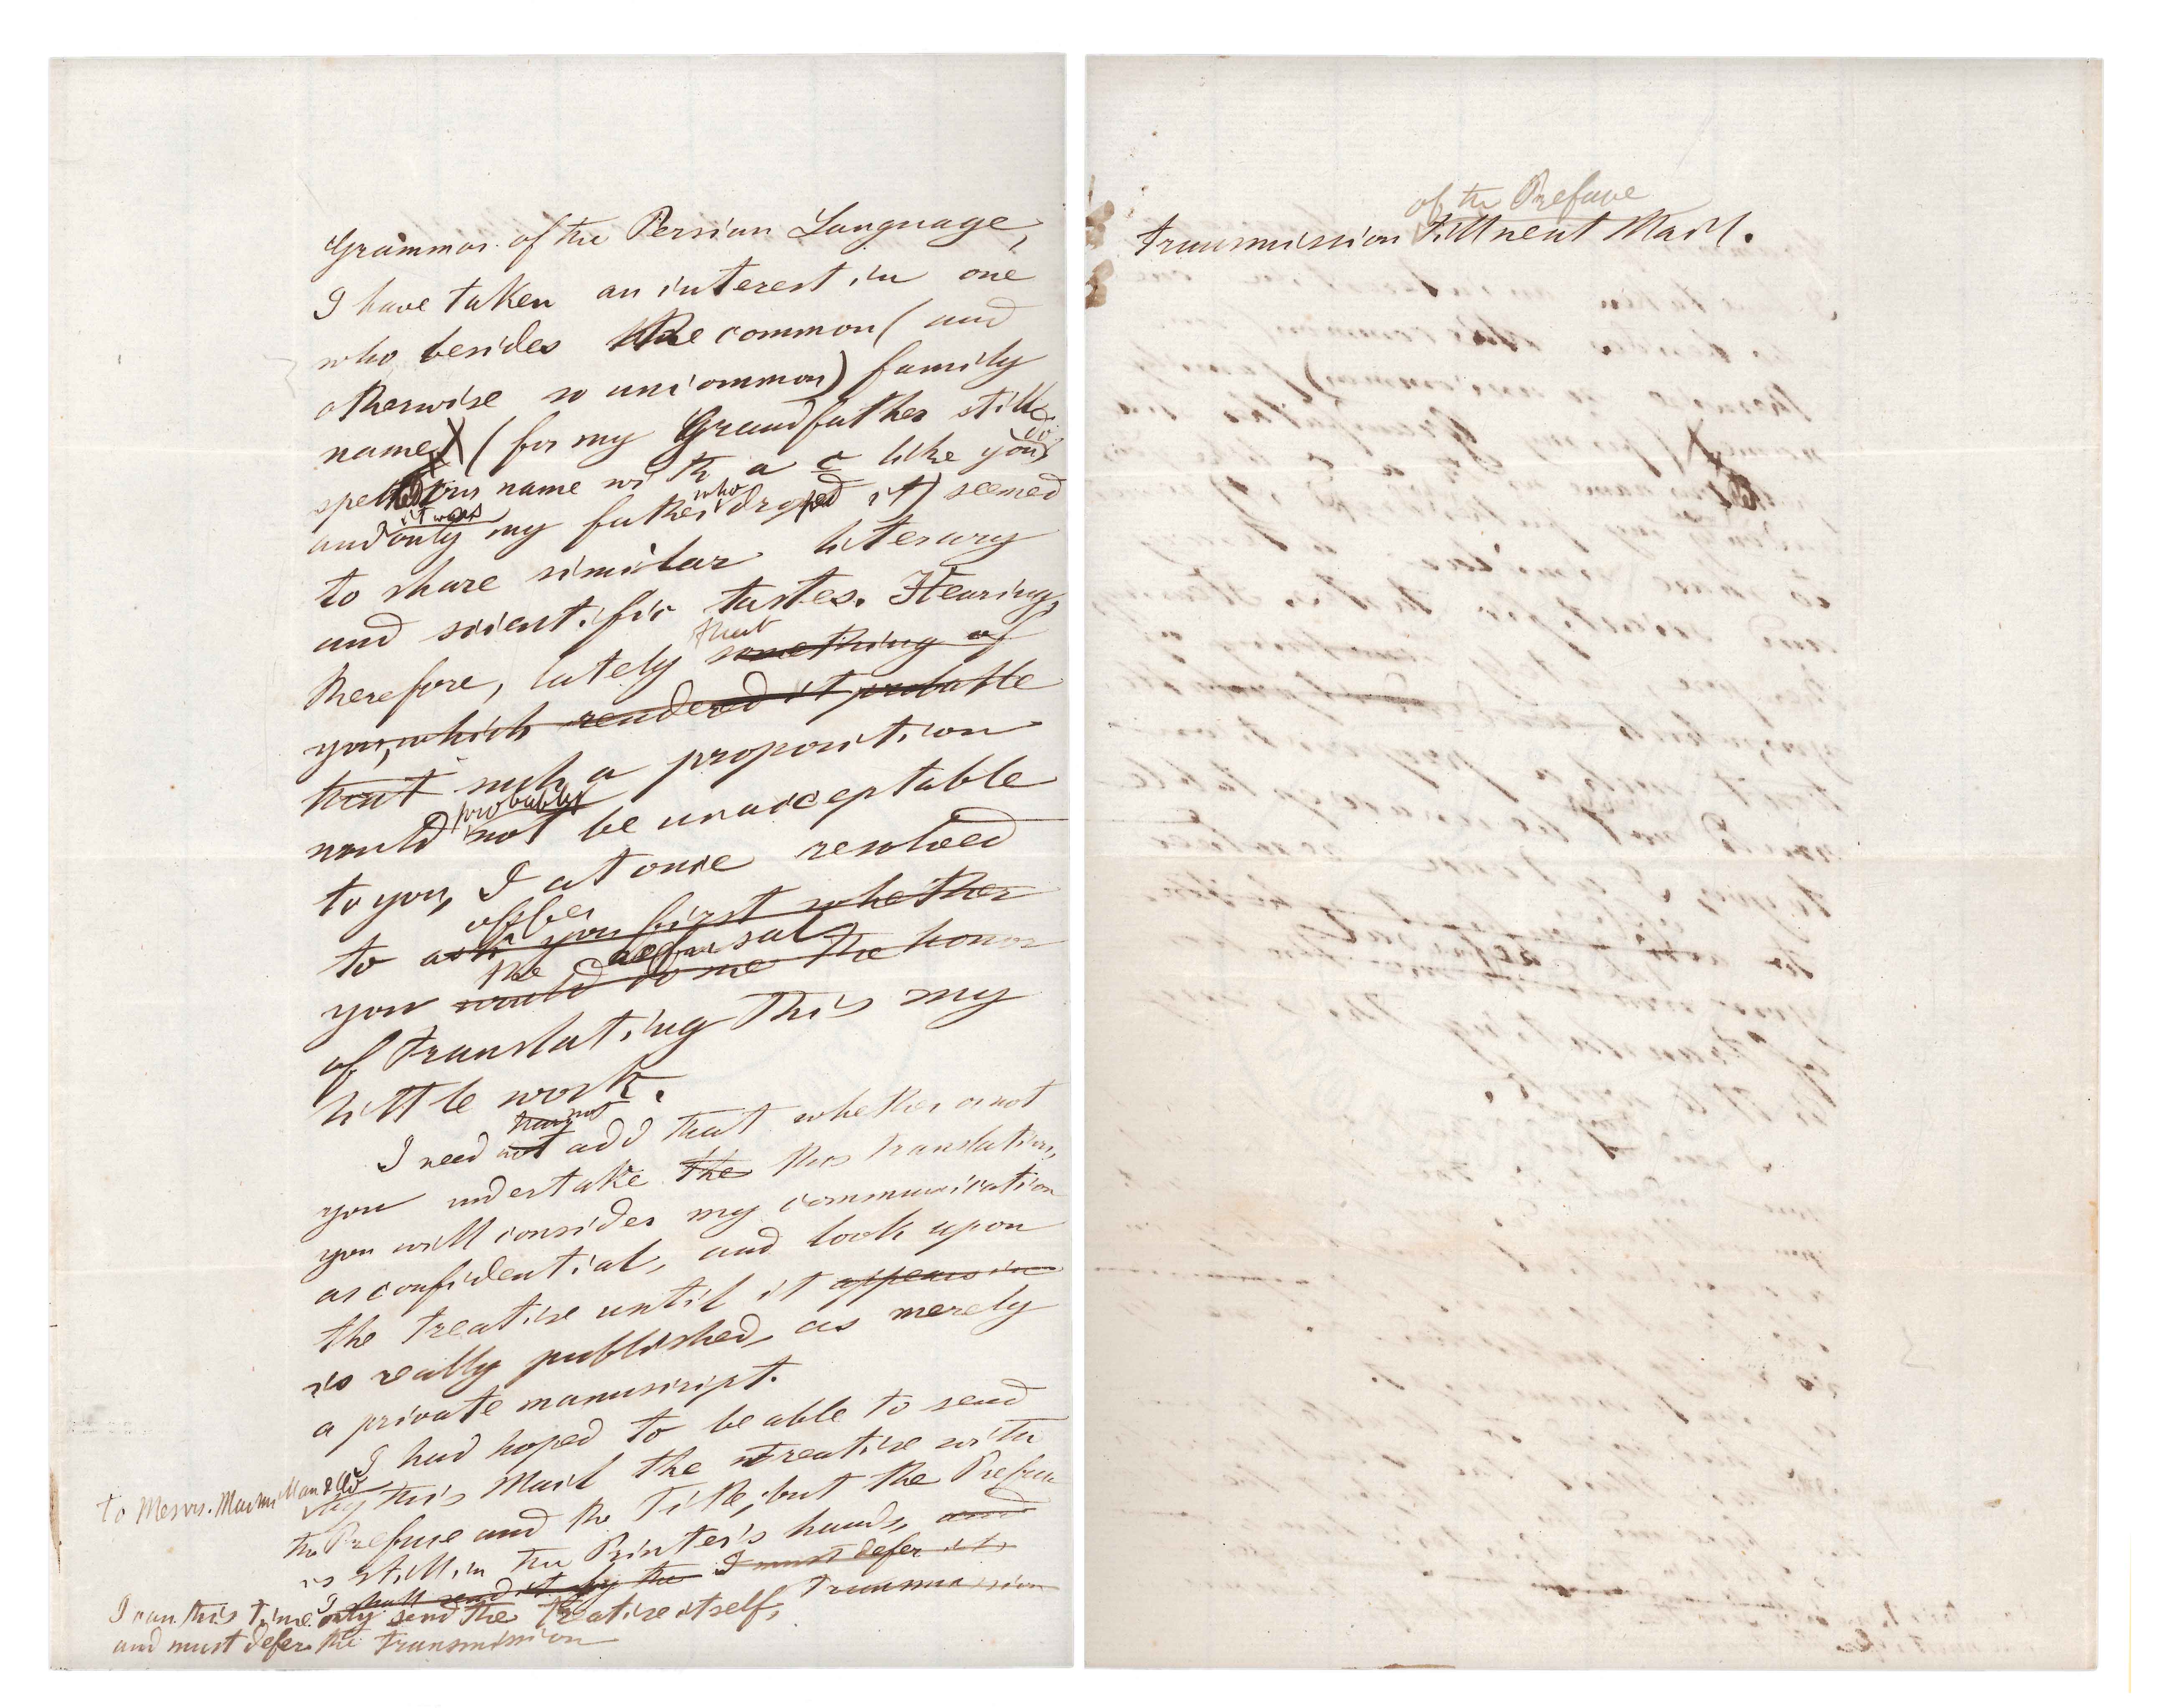 Grammar of the Persian Language,
I have taken an interest in one
who, besides the common (and
otherwise so uncommon) family
name (for my Grandfather still
spelled his name with a c like you do
and it was only my father who droped it) seemed
to share similar literary
and scientific tastes. Hearing,
therefore, lately that something of
you, which rendered it probable
that such a proposition
would probably not be unacceptable
to you, I at once resolved
offer
to ask you first whether
the refusal
you would do me the honor
of translating this my
little work.
I need not add that whether or not
you undertake the this translation,
you will consider my communication
as confidential, and look upon
the treatise until it appears in
is really published, as merely
a private manuscript.
I had hoped to be able to send
to Messrs. Macmillan & Co
by this Mail the treatise with
the Preface and the Title; but the Preface
is still in the Printer's hands, and
I shall send it by the I must defer its
I can this time only send the treatise itself, transmission
and must defer the transmission
of the Preface
transmission till next Mail.